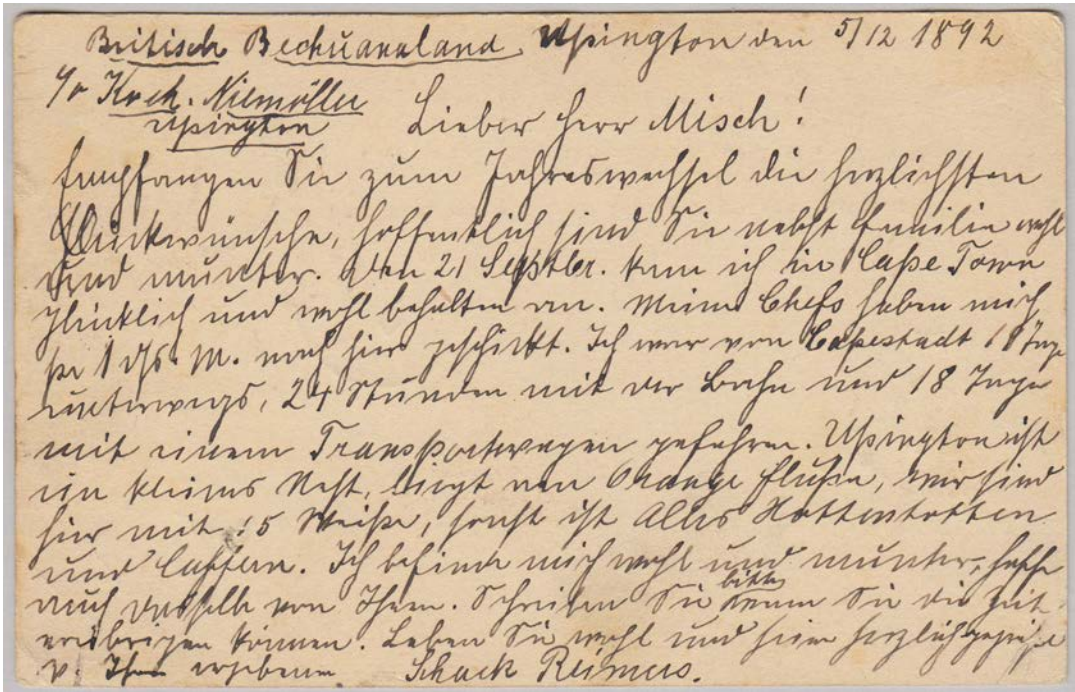 Britisch Bechuanaland, Upington den 5/12 1892
p/r Koch. Niemöller
Upington Lieber Herr Misch!
Empfangen Sie zum Jahreswechsel die herzlichsten
Glückwünsche, hoffentlich sind Sie nebst Familie wohl
und munter. Den 21 Septbr. kam ich in Cape Town
glücklich und wohl behalten an. Meine Chefs haben mich
1 ds. M. nach hier geschickt. Ich war von Capestadt Tage
unterwegs, 24 Stunden mit der Bahn und 18 Tage
mit einem Transportwagen gefahren. Upington ist
ein kleines Nest, liegt am Orange Fluße, wir sind
hier mit 15 Weiße, sonst ist Alles Hottentotten
und Caffern. Ich befinde mich wohl und munter, hoffe
auch dasselbe von Ihnen. Schreiben Sie bitte wenn Sie die Zeit
erübrigen können. Leben Sie wohl und seien herzlich gegrüßt
v. Ihrem ergebenen Schack Reimers.